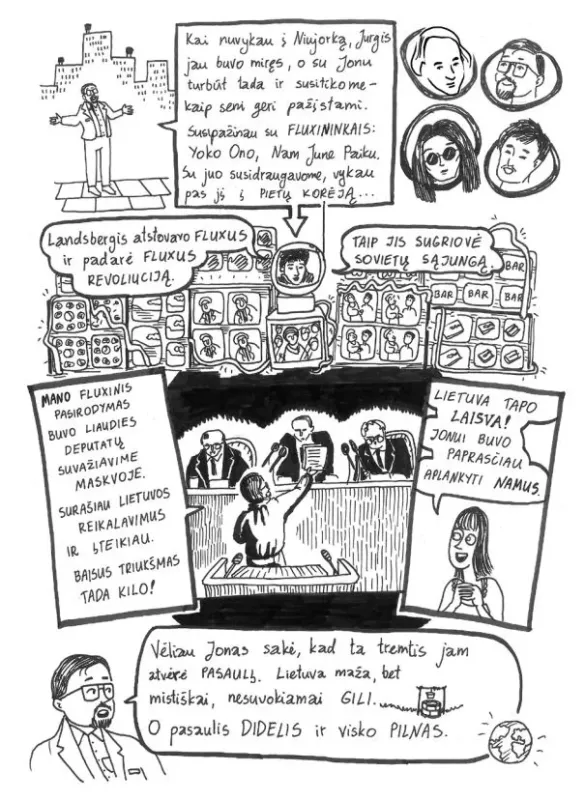 Kai nuvykau į Niujorką, Jurgis
jau buvo miręs, o su Jonu
turbūt tada ir susitikome-
kaip seni geri pažįstami.
Susipažinau su FLUXININKAIS:
Yoko Ono, Nam June Paiku.
Su juo susidraugavome, vykau
pas jį į PIETŲ KORĖJĄ...
Landsbergis atstovavo FLUXUS
ir padarė FLUXUS
REVOLIUCIJĄ.
TAIP JIS SUGRIOVĖ
SOVIETŲ SĄJUNGĄ.
BAR
BAR BAR BAR
MANO FLUXINIS
PASIRODYMAS
BUVO LIAUDIES
DEPUTATŲ
SUVAŽIAVIME
MASKVOJE.
SURAŠIAU LIETUVOS
REIKALAVIMUS
IR ĮTEIKIAU.
BAISUS TRIUKŠMAS
TADA KILO!
LIETUVA TAPO
LAISVA!
JONUI BUVO
PAPRASČIAU
APLANKYTI NAMUS.
Vėliau Jonas sakė, kad ta tremtis jam
atvėrė PASAULĮ. Lietuva maža, bet
mistiškai, nesuvokiamai GILI.
O pasaulis DIDELIS ir visko PILNAS.